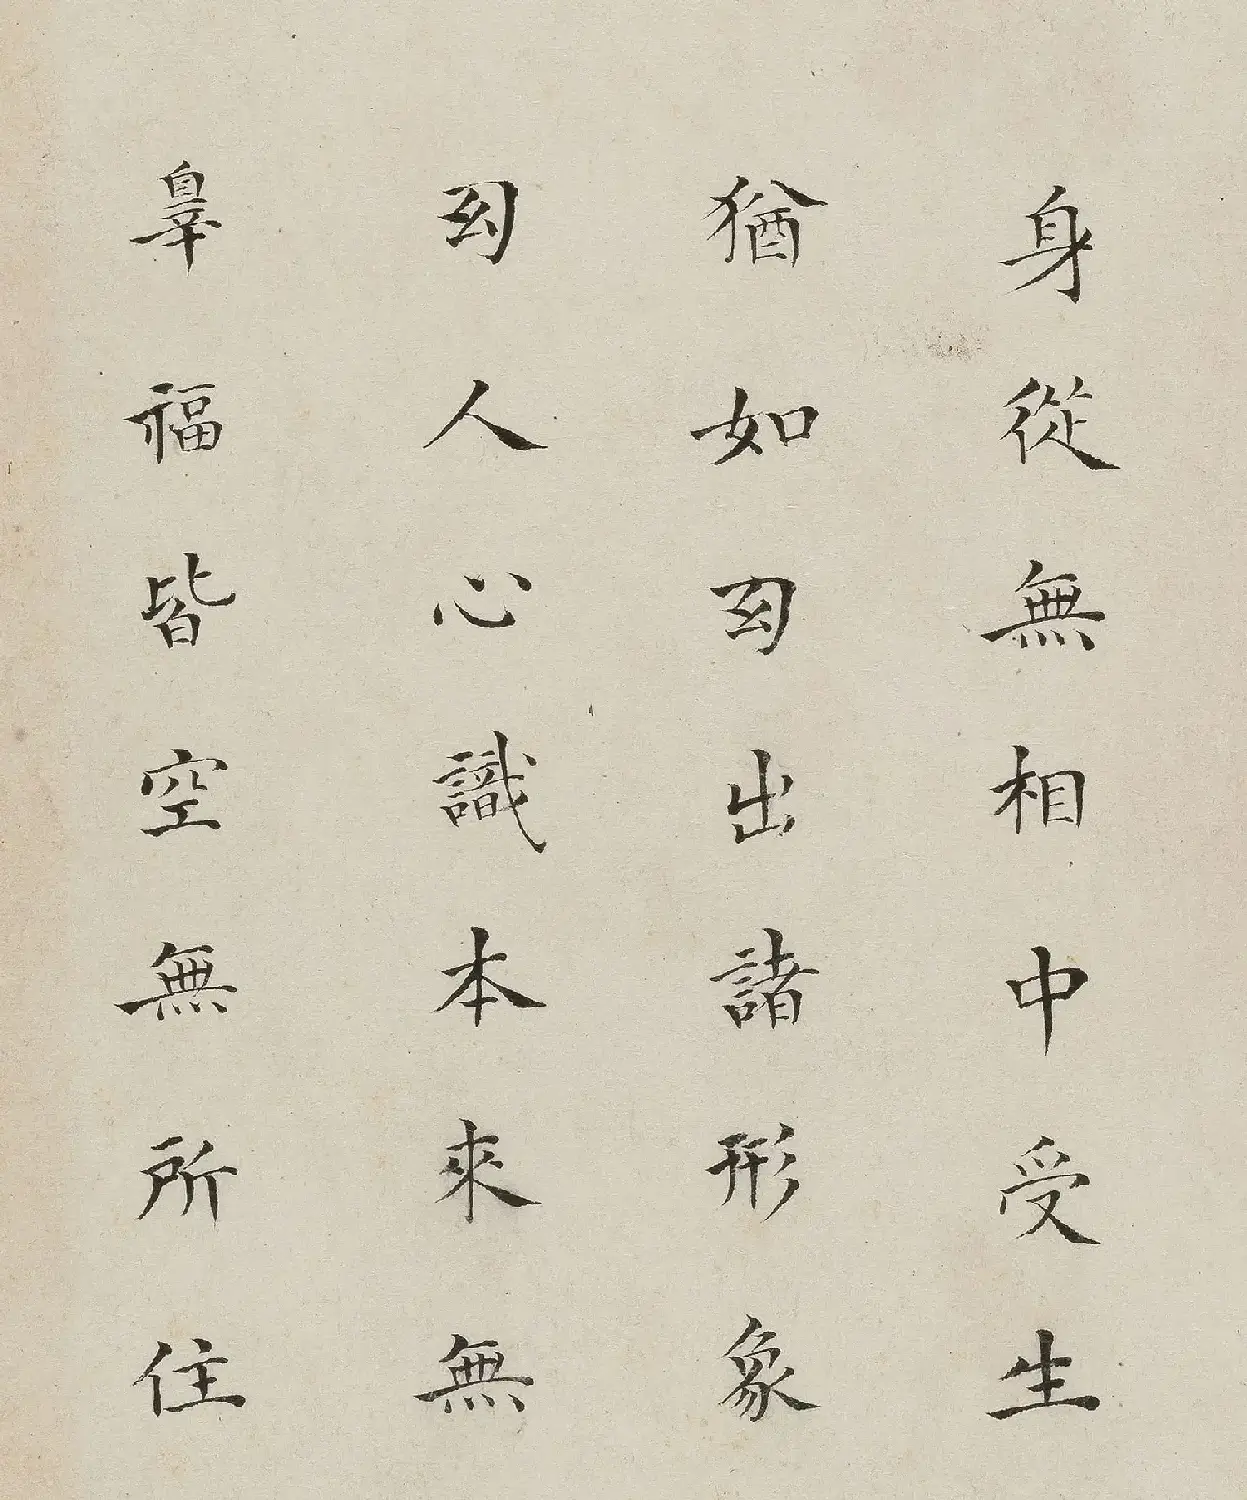 身從無相中受生
猶如幻出諸形象
幻人心識本來無
辠福皆空無所住